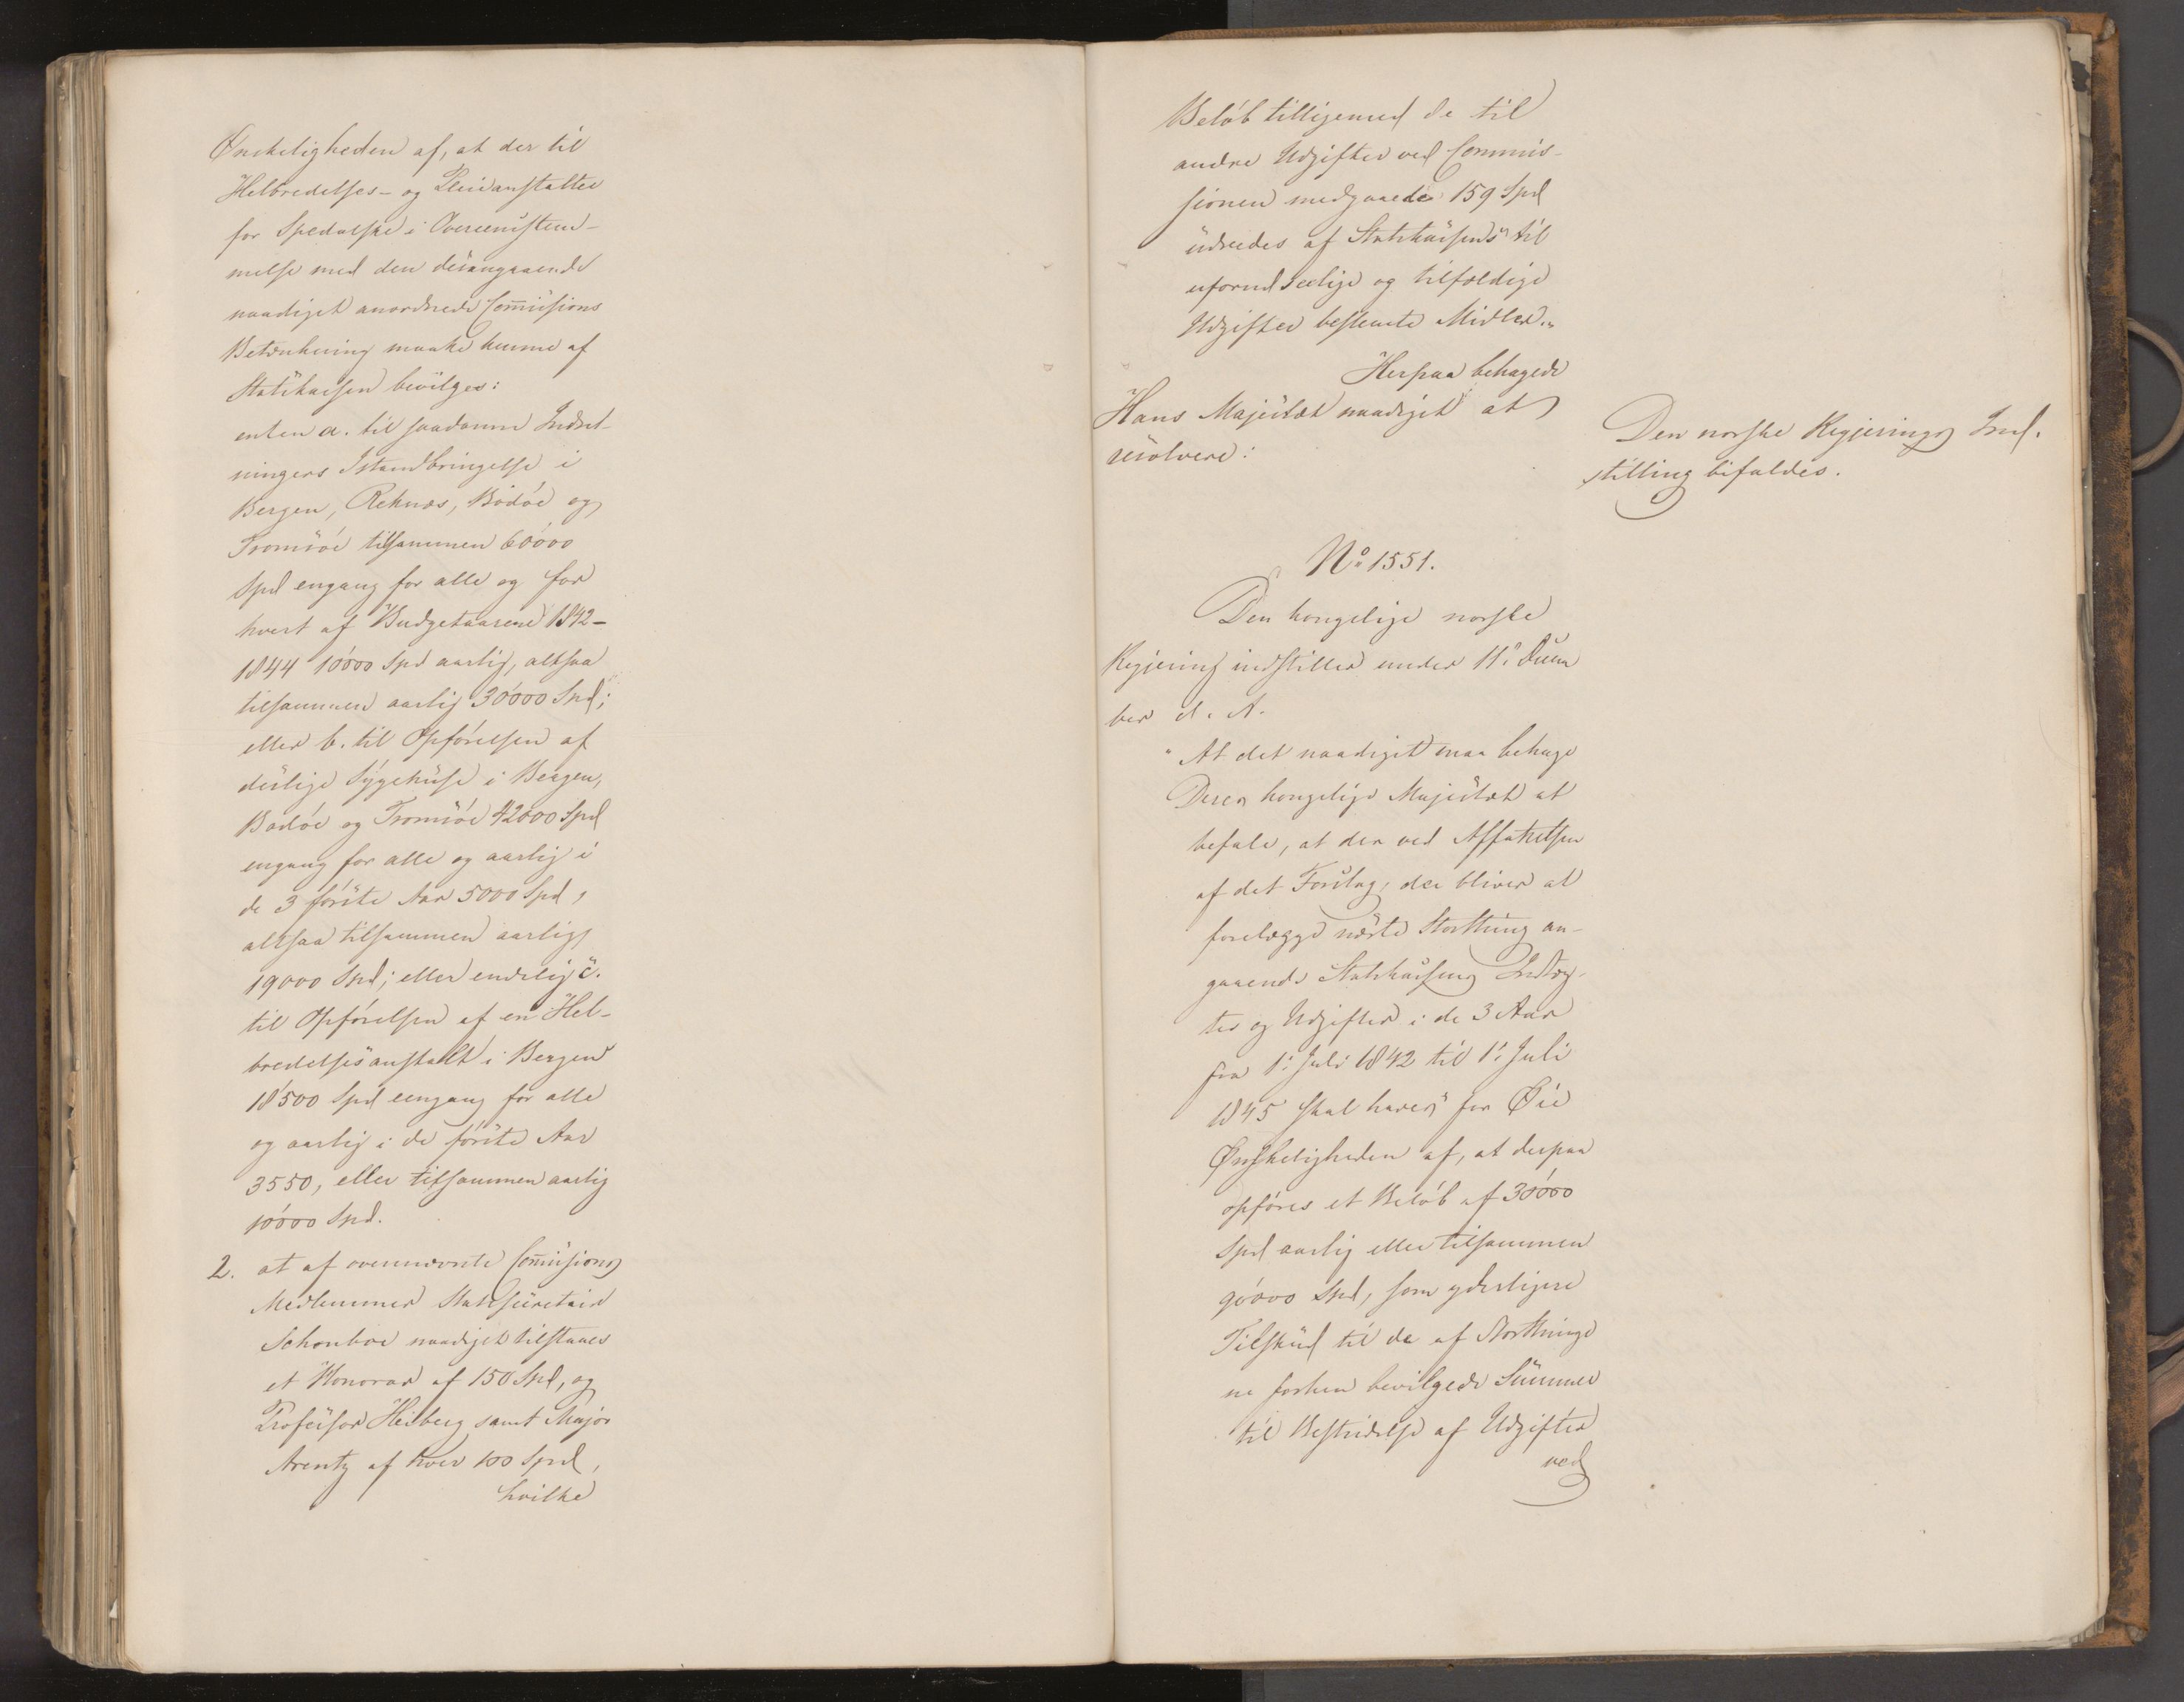 Ønskeligheden af, at der til
Helbredelses- og Pleieanstalter
for Spedalske i Overeenstem-
melse med den desangaaende
naadigst anordnede Com̄issions
Betænkning maatte kunne af
Statskassen bevilges:
enten a. til saadanne Indret-
ningers Istandbringelse i
Bergen, Reknæs, Bodöe og
Tromsöe tilsammen 60'000
Spd engang for alle og for
hvert af Budgetaarene 1842-
1844 10'000 Spd aarlig, altsaa
tilsammen aarlig 30'000 Spd;
eller b. til Opförelsen af
deslige Sygehuse i Bergen,
Bodöe og Tromsöe 42000 Spd
engang for alle og aarlig i
de 3 förste Aar 5000 Spd,
altsaa tilsammen aarlig
19000 Spd; eller endelig c.
til Opförelsen af en Hel-
bredelsesanstalt i Bergen
18'500 Spd eengang for alle
og aarlig i de förste Aar
3550, eller tilsammen aarlig
10'000 Spd.
2. at af ovennævnte Com̄issions
Medlemmer Statssecretair
Schouboe naadigst tilstaaes
et Honorar af 150 Spd, og
Professor Heiberg samt Major
Arentz af hver 100 Spd,
hvilke
Belöb tilligemed de til
andre Udgifter ved Commis-
sionen medgaaede 159 Spd
udredes af Statskassens til
uforudseelige og tilfældige
Udgifter bestemte Midler."
Herpaa behagede
Hans Majestæt naadigst at
resolvere:
Den norske Regjerings Ind-
stilling bifaldes.
No 1551.
Den kongelige norske
Regjering indstiller under 11e Decem
ber d. A.
"At det naadigst maa behage
Deres kongelige Majestæt at
befale, at der ved Affattelsen
af det Forslag, der bliver at
forelægge næste Storthing an-
gaaende Statskassens Indtæg-
ter og Udgifter i de 3 Aar
fra 1e Juli 1842 til 1e Juli
1845 skal haves for Øie
Ønskeligheden af, at derpaa
opföres et Belöb af 30'000
Spd aarlig eller tilsammen
90'000 Spd, som yderligere
Tilskud til de af Storthinge
ne forhen bevilgede Summer
til Bestridelse af Udgifter
ved